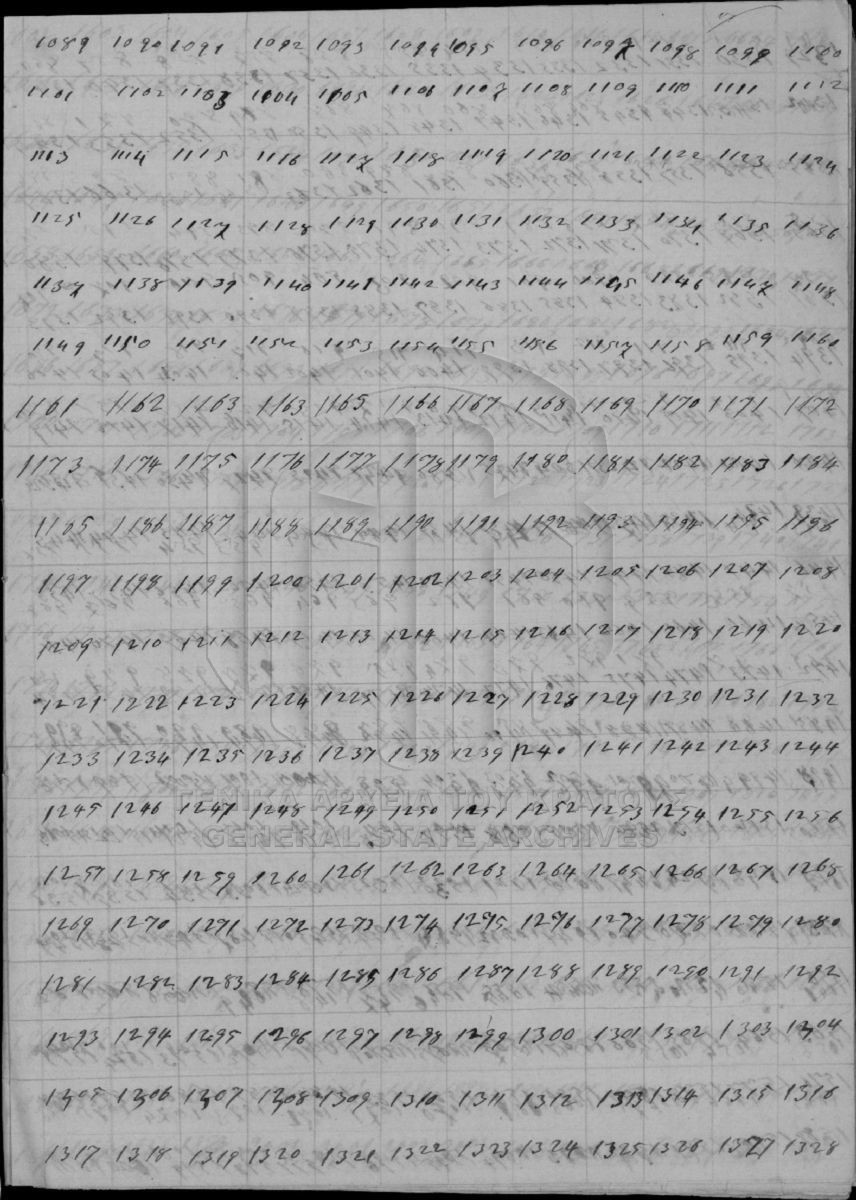 1089 1090 1091 1092 1093 1094 1095 1096 1097 1098 1099 1100
1101 1102 1103 1004 1105 1106 1107 1108 1109 1110 1111 1112
1113 1114 1115 1116 1117 1118 1119 1120 1121 1122 1123 1124
1125 1126 1127 1128 1129 1130 1131 1132 1133 1134 1135 1136
1137 1138 1139 1140 1141 1142 1143 1144 1145 1146 1147 1148
1149 1150 1151 1152 1153 1154 1155 1156 1157 1158 1159 1160
1161 1162 1163 1163 1165 1166 1167 1168 1169 1170 1171 1172
1173 1174 1175 1176 1177 1178 1179 1180 1181 1182 1183 1184
1185 1186 1187 1188 1189 1190 1191 1192 1193 1194 1195 1196
1197 1198 1199 1200 1201 1202 1203 1204 1205 1206 1207 1208
1209 1210 1211 1212 1213 1214 1215 1216 1217 1218 1219 1220
1221 1222 1223 1224 1225 1226 1227 1228 1229 1230 1231 1232
1233 1234 1235 1236 1237 1238 1239 1240 1241 1242 1243 1244
1245 1246 1247 1248 1249 1250 1251 1252 1253 1254 1255 1256
GENERAL STATE ARCHIVES
1257 1258 1259 1260 1261 1262 1263 1264 1265 1266 1267 1268
1269 1270 1271 1272 1273 1274 1275 1276 1277 1278 1279 1280
1281 1282 1283 1284 1285 1286 1287 1288 1289 1290 1291 1292
1293 1294 1295 1296 1297 1298 1299 1300 1301 1302 1303 1304
1305 1306 1307 1308 1309 1310 1311 1312 1313 1314 1315 1316
1317 1318 1319 1320 1321 1322 1323 1324 1325 1326 1327 1328